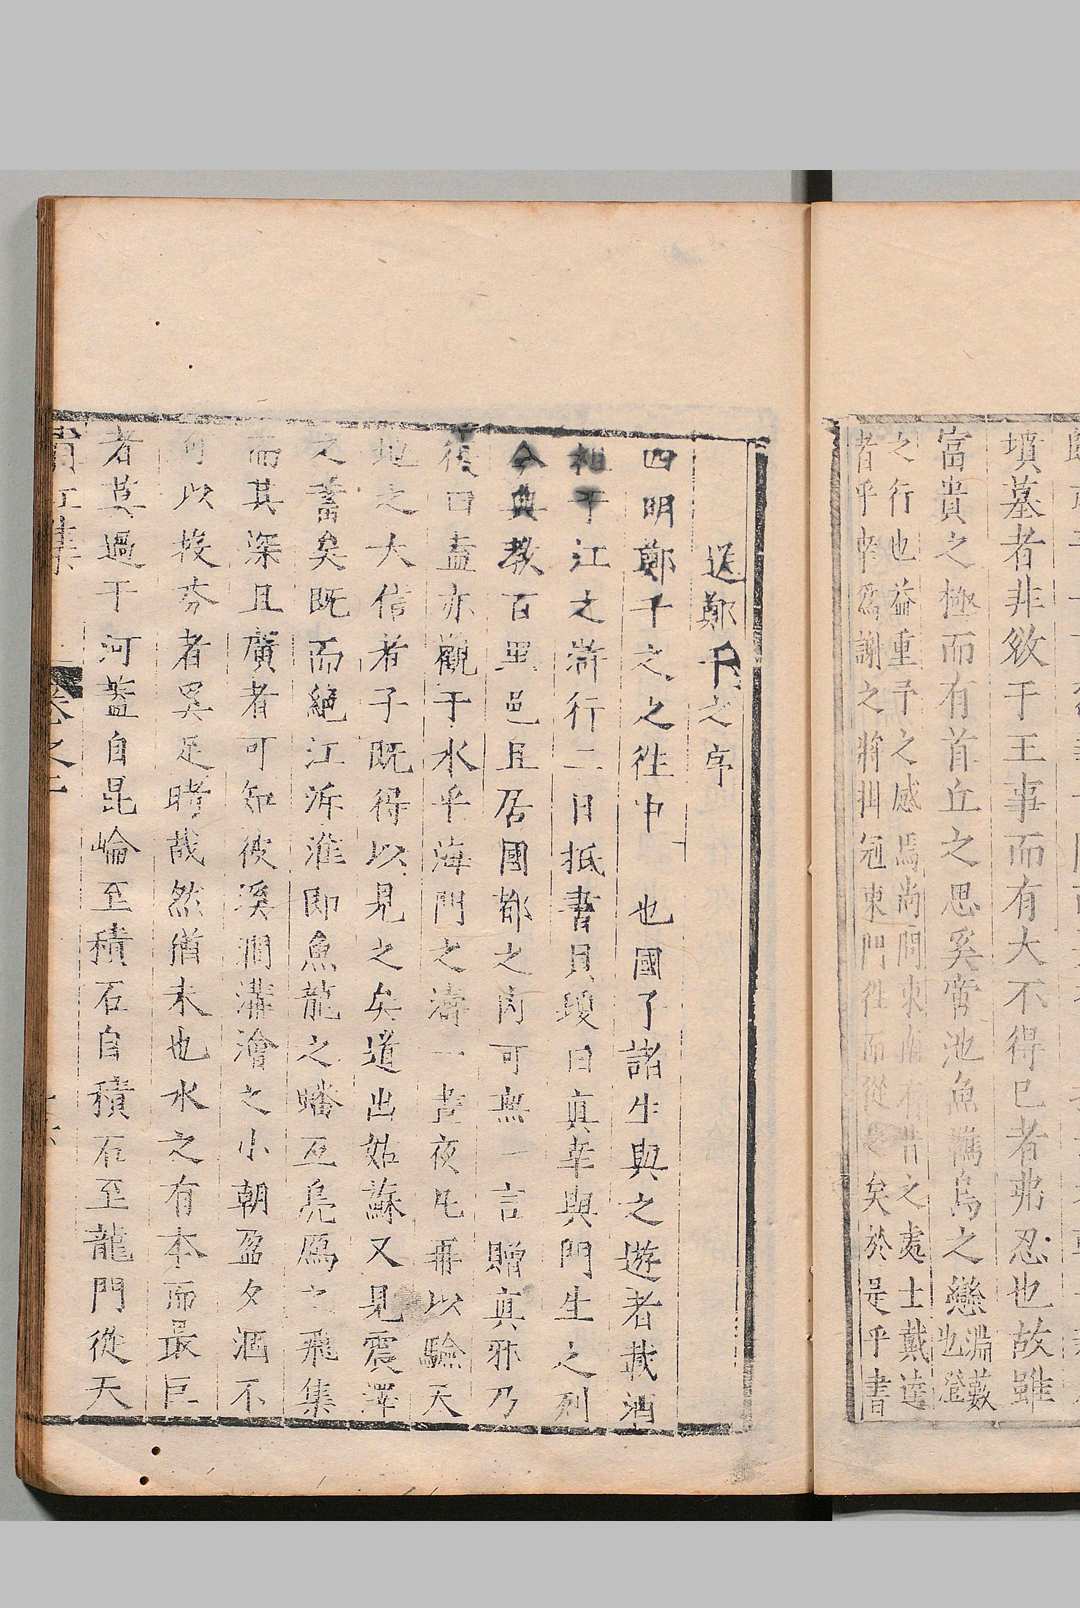 墳墓者非敓于王事而有大不得已者弗忍也故雖
富貴之極而有首丘之思奚啻池魚檻鳥之戀淵藪也澄
之行也益重予之感焉尚問東南有昔之處士戴逵
者乎幸爲謝之將挂冠東門往而從矣於是乎書
送鄭千之序
四明鄭千之之往中也國子諸生與之遊者載酒
祖于江之滸行二日抵書貝瓊曰真幸與門生之列
今典教百里邑且居國都之內可無一言贈真邪乃
復曰盍亦觀于水乎海門之濤一晝夜凡再以驗天
地之大信者子既得以見之矣道出姑蘇又見震澤
之蓄矣既而絕江泝淮即魚龍之蟠互鳧鴈之飛集
而其深且廣者可知彼溪澗溝澮之小朝盈夕涸不
可以按夯者奚足睹哉然僧未也水之有本而最巨
者莫過于河蓋自昆崘至積石自積石至龍門從天
卷之